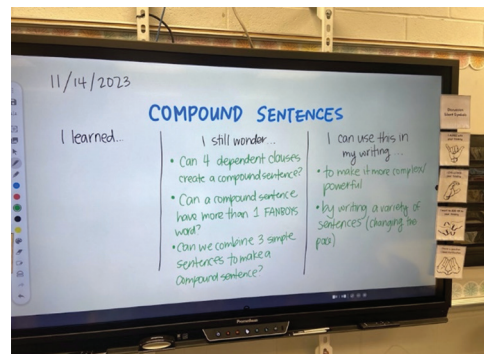 11/14/2023
COMPOUND SENTENCES
I learned...
I still wonder...
• Can 4 dependent clauses
create a compound sentence?
• Can a compound sentence
have more than 1 FANBOYS
word?
• Can we combine 3 simple
sentences to make a
compound sentence?
I can use this in
my writing...
• to make it more complex/
powerful
• by writing a variety of
sentences (changing the
pace)